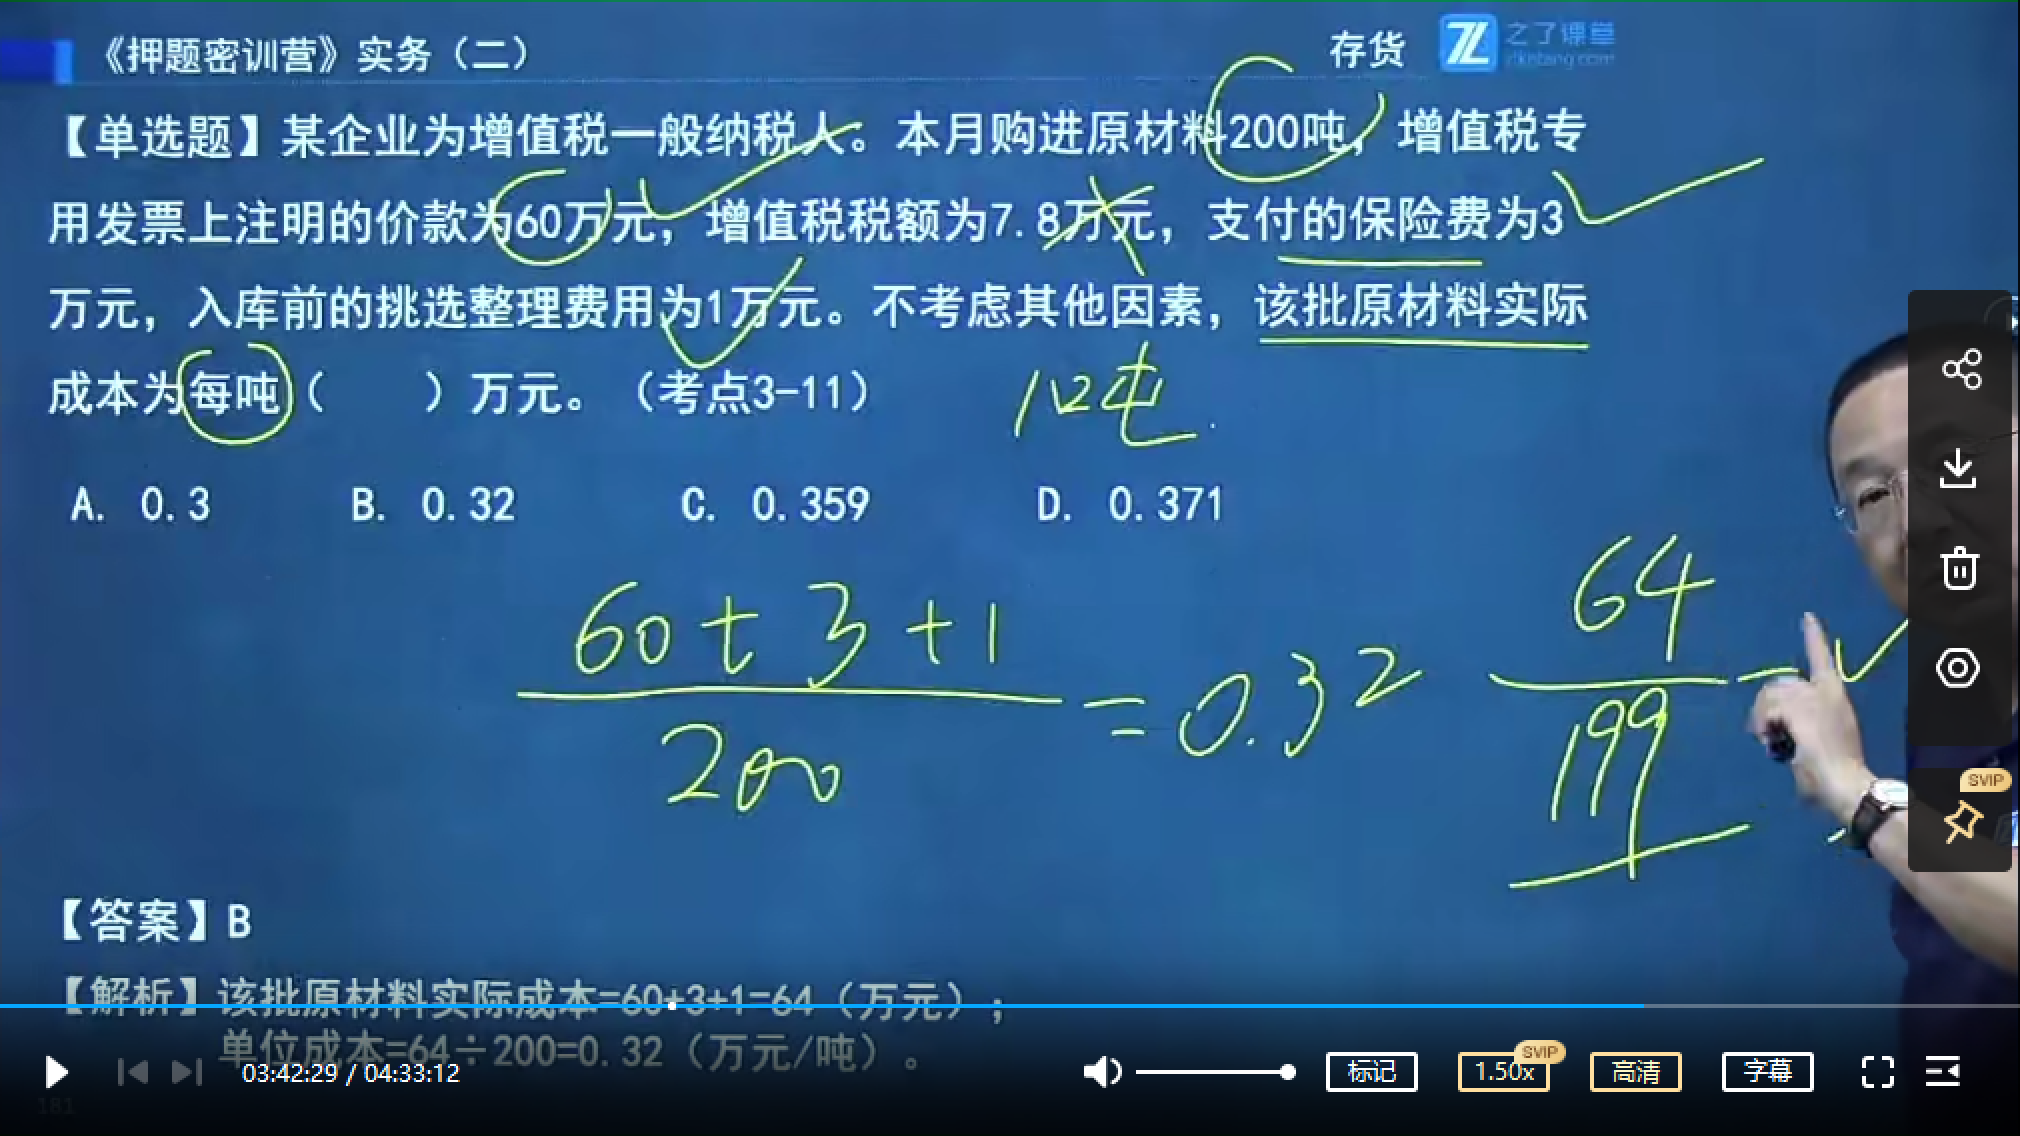 《押题密训营》实务（二）
存货
之了课堂
zlketang.com
【单选题】某企业为增值税一般纳税人。本月购进原材料200吨，增值税专
用发票上注明的价款为60万元，增值税税额为7.8万元，支付的保险费为3
万元，入库前的挑选整理费用为1万元。不考虑其他因素，该批原材料实际
成本为每吨（　　）万元。（考点3-11）
A. 0.3 B. 0.32 C. 0.359 D. 0.371
60+3+1
200
=0.32
64
199
【答案】B
【解析】该批原材料实际成本=60+3+1=64（万元）；
单位成本=64÷200=0.32（万元/吨）。
SVIP
03:42:29 / 04:33:12
标记
1.50x
SVIP
高清
字幕
181